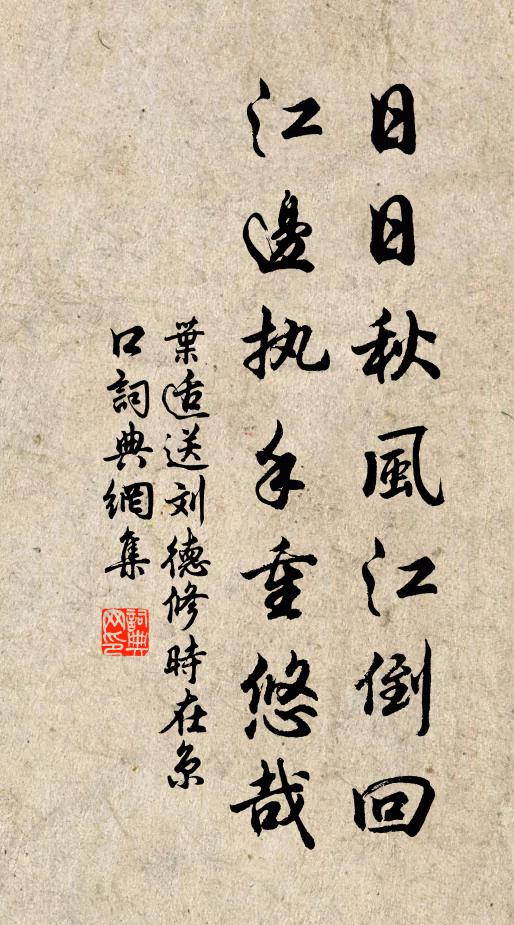 日日秋風江倒回
江邊执手重悠哉
葉适送刘德修時在京
口詞典網集
詞典
网印